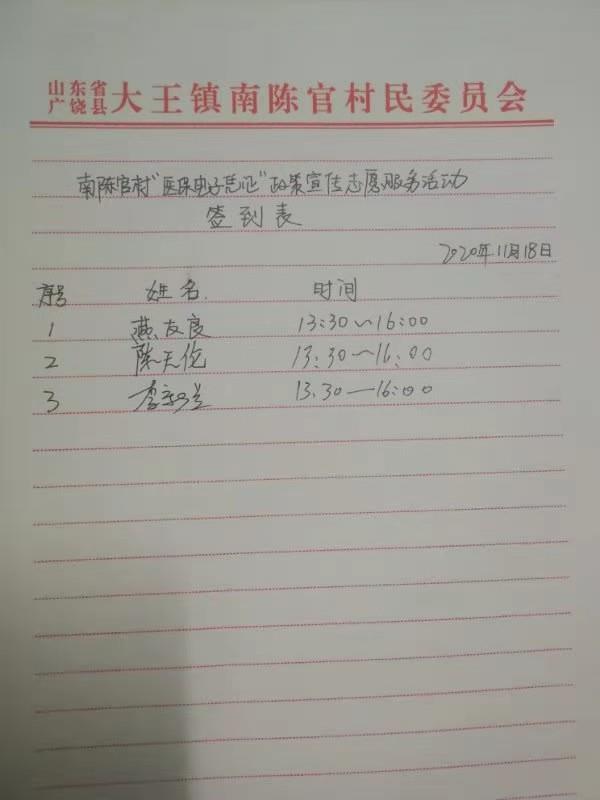 山东省
广饶县 大王镇南陈官村民委员会
南陈官村"医保电子凭证"政策宣传志愿服务活动
签到表
2020年11月18日
序号 姓名 时间
1 燕友良 13:30～16:00
2 陈天伦 13:30～16:00
3 李 兰 13:30—16:00